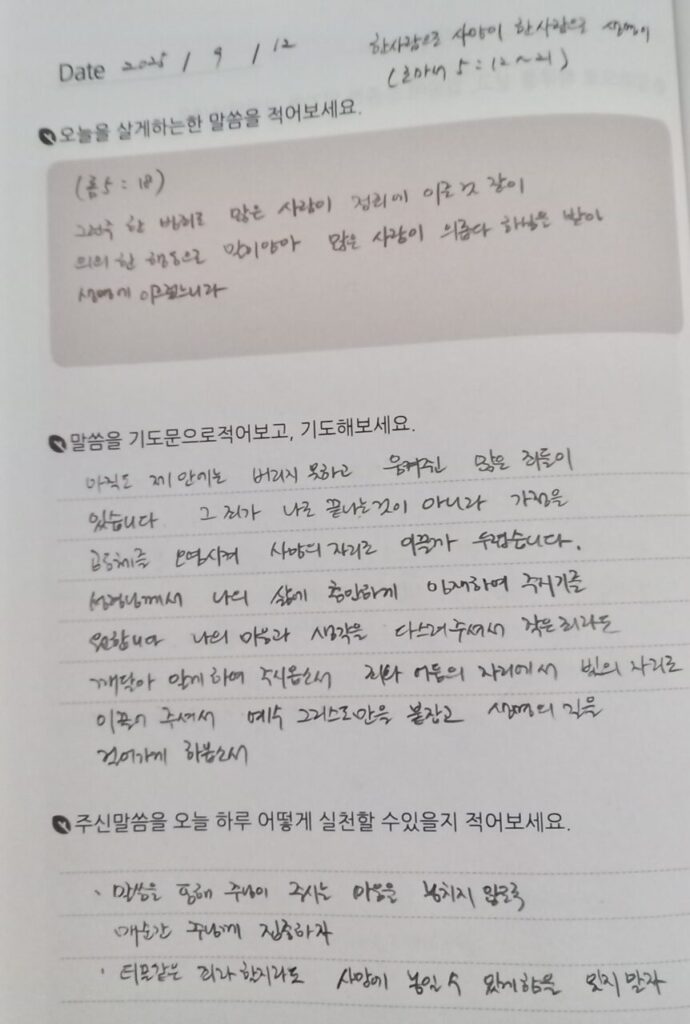 Date 2025 / 9 / 12
한사람으로 사망이 한사람으로 생명이
(로마서 5 : 12 ~ 21)
오늘을 살게하는한 말씀을 적어보세요.
(롬5 : 18)
그런즉 한 범죄로 많은 사람이 정죄에 이른것 같이
의의 한 행동으로 말미암아 많은 사람이 의롭다 하심을 받아
생명에 이르렀느니라
말씀을 기도문으로적어보고, 기도해보세요.
아직도 제 안에는 버리지 못하고 움켜쥔 많은 죄들이
있습니다 그 죄가 나로 끝나는것이 아니라 가정을
공동체를 오염시켜 사망의 자리로 이끌까 두렵습니다.
성령님께서 나의 삶에 충만하게 임재하여 주시기를
원합니다 나의 마음과 생각을 다스려주셔서 작은 죄라도
깨달아 알게 하여 주시옵소서 죄와 어둠의 자리에서 빛의 자리로
이끌어 주셔서 예수 그리스도만을 붙잡고 생명의 길을
걸어가게 하옵소서
주신말씀을 오늘 하루 어떻게 실천할 수있을지 적어보세요.
· 말씀을 통해 주님이 주시는 마음을 놓치지 않도록
매순간 주님께 집중하자
· 티끌같은 죄라 할지라도 사망에 놓일 수 있게함을 잊지 말자